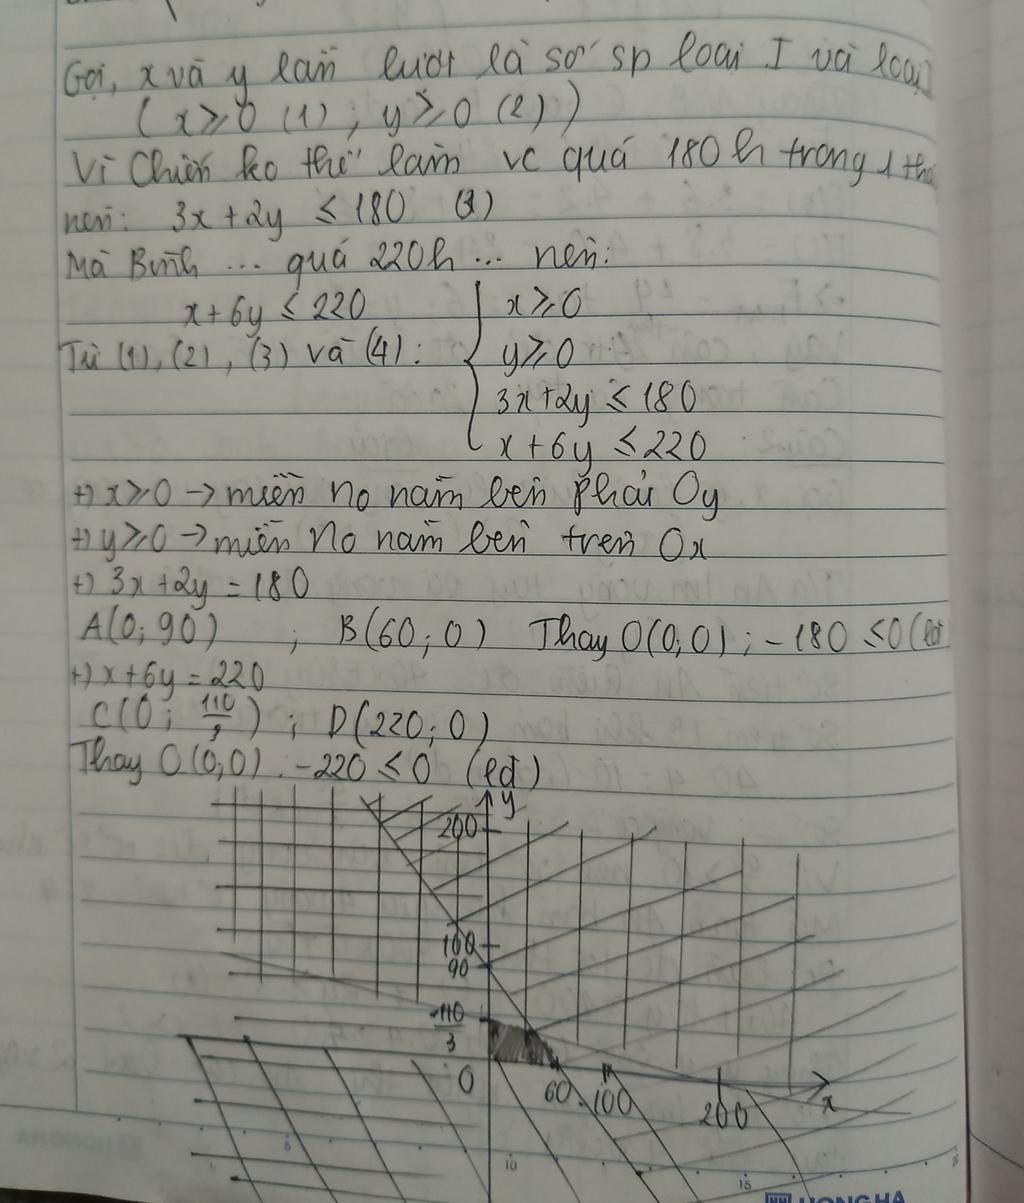 Gọi, x và y lần lượt là số sp loại I và loại
( x ≥ 0 (1) ; y ≥ 0 (2) )
Vì Chiến ko thể làm vc quá 180h trong 1
nên: 3x + 2y ≤ 180 (3)
Mà Bình ... quá 220h ... nên:
x + 6y ≤ 220
Từ (1), (2), (3) và (4):
x ≥ 0
y ≥ 0
3x + 2y ≤ 180
x + 6y ≤ 220
+) x ≥ 0 → miền no nằm bên phải Oy
+) y ≥ 0 → miền no nằm bên trên Ox
+) 3x + 2y = 180
A(0; 90) ; B(60; 0) Thay O(0; 0) : -180 ≤ 0
+) x + 6y = 220
C(0; 110/3) ; D(220; 0)
Thay O(0, 0) : -220 ≤ 0 (lđ)
y
200
100
90
110/3
O
60
100
200
x
10
15
HONG HA